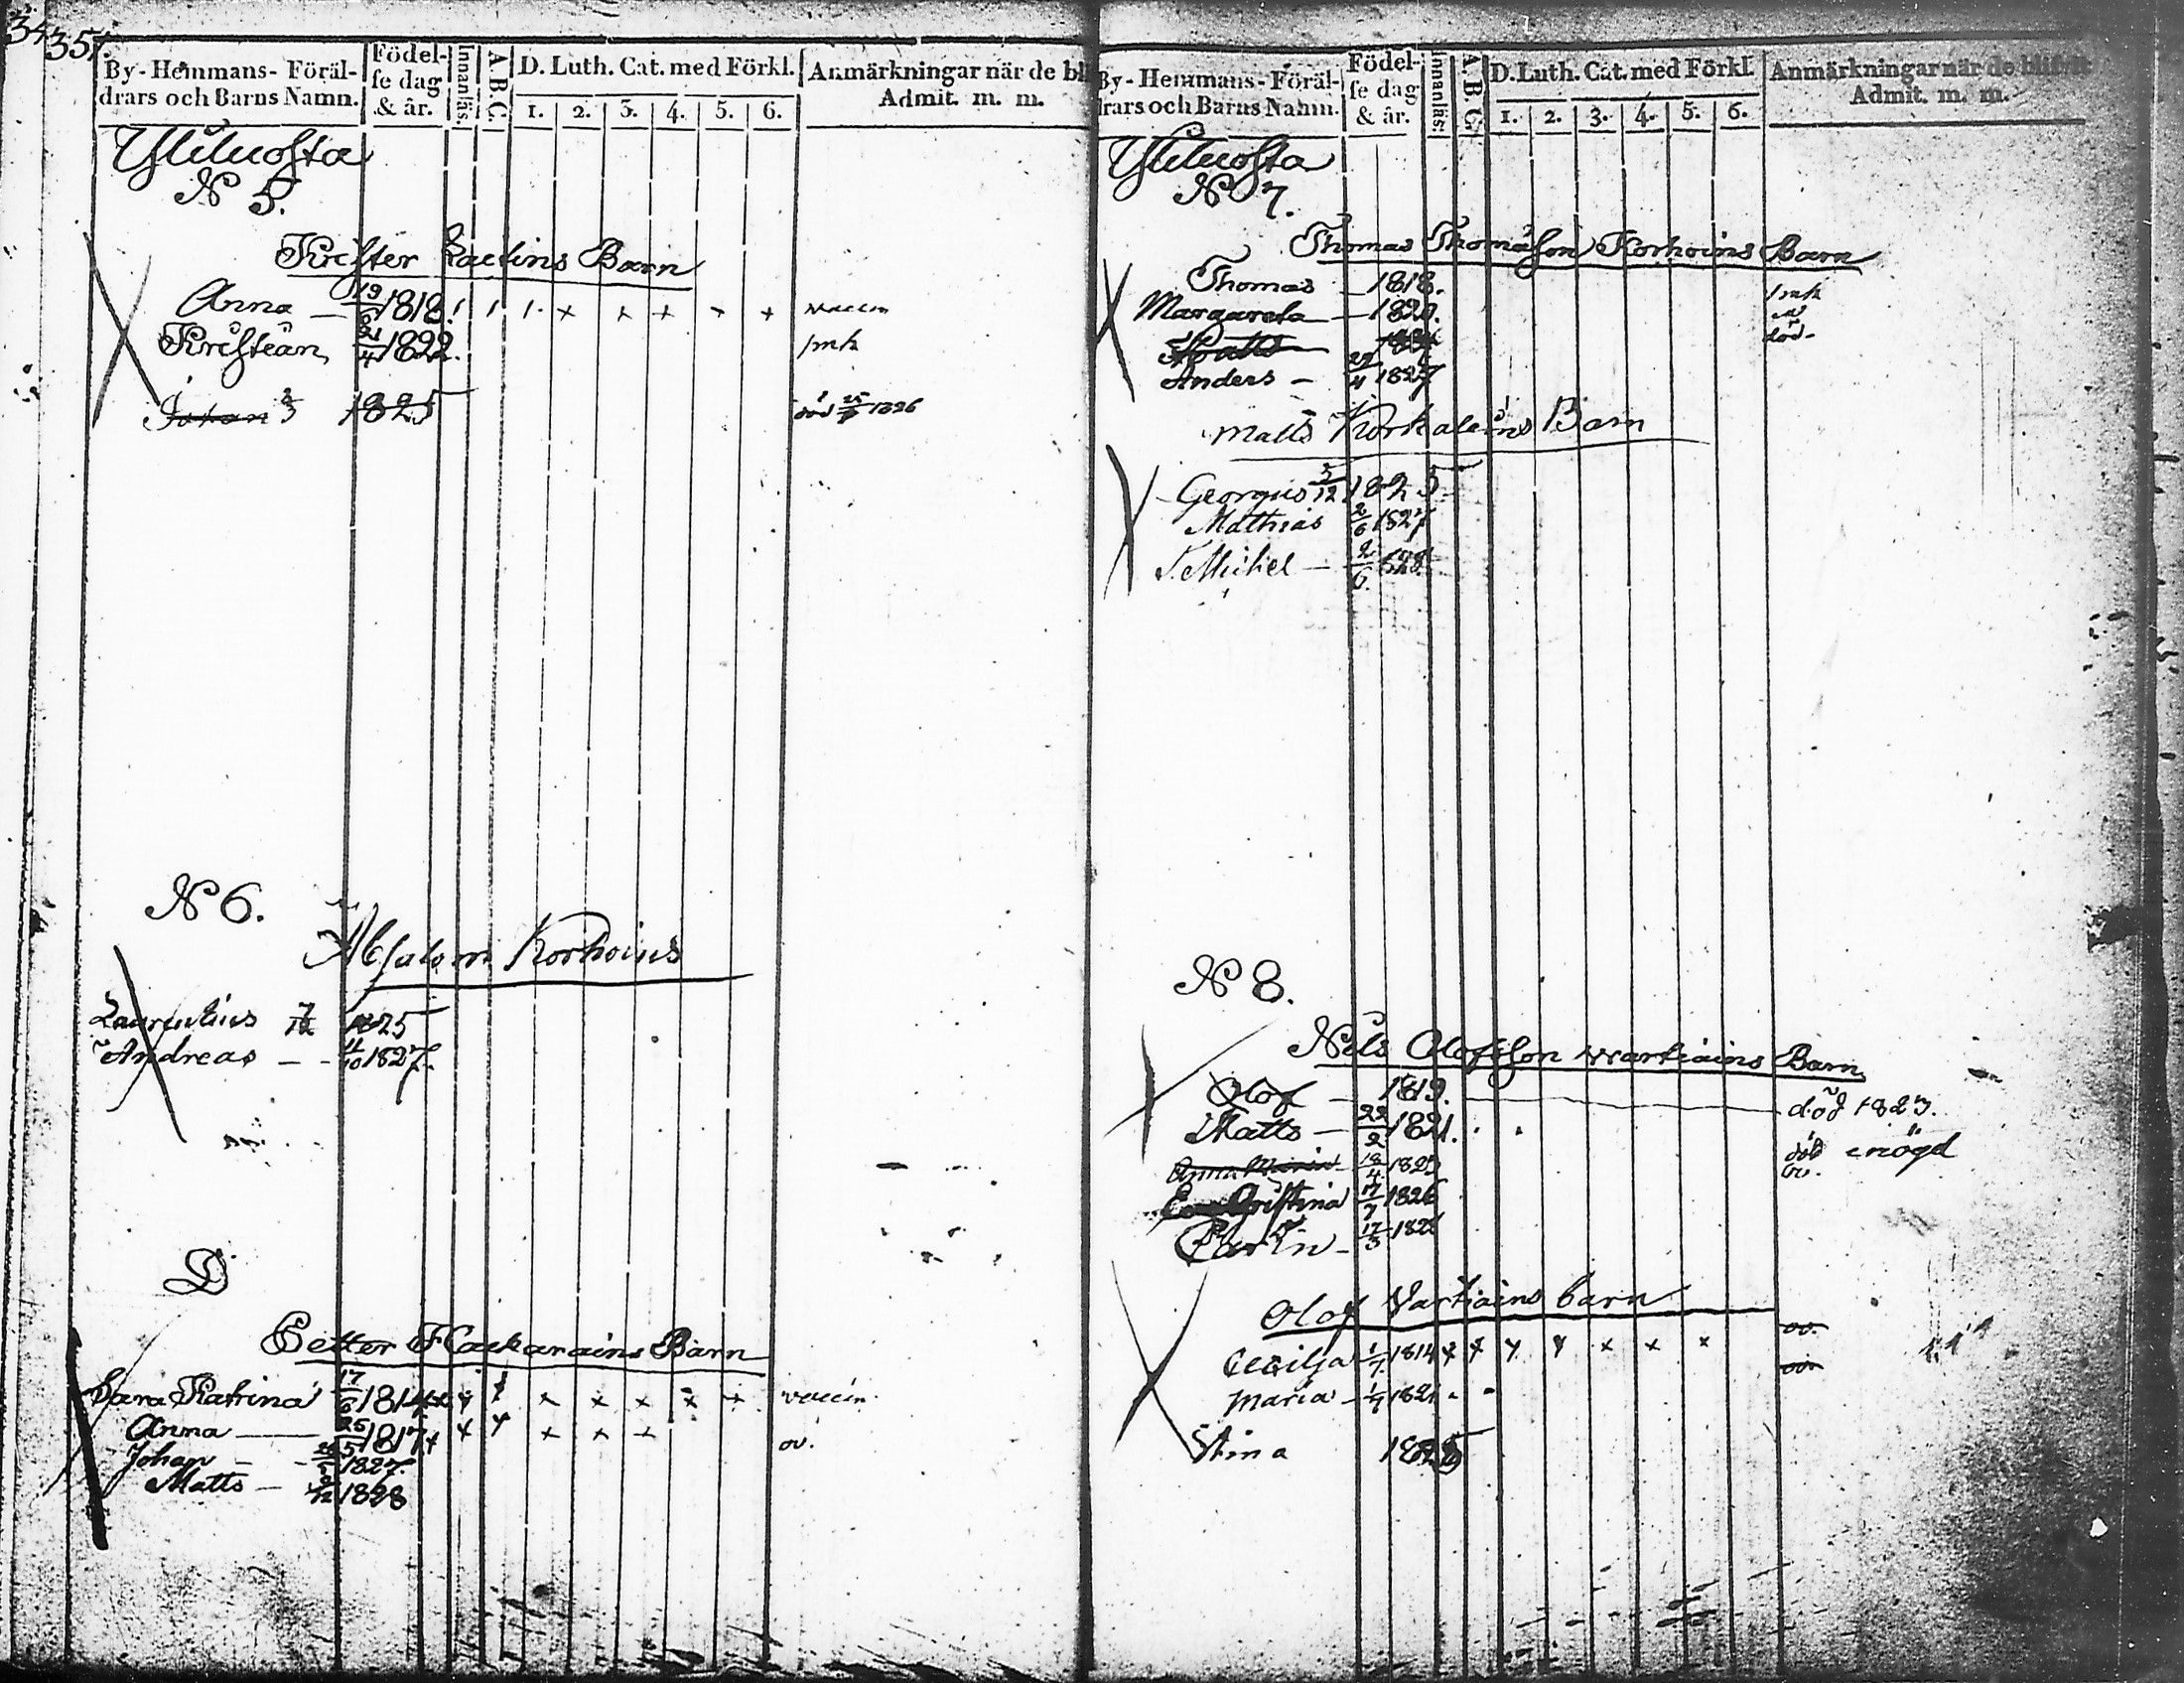 351.
By-Hemmans-Föräl-
drars och Barns Namn.
Födel-
se dag
& år.
Innanläs:
A.B.C.
D. Luth. Cat. med Förkl.
1. 2. 3. 4. 5. 6.
Anmärkningar när de bl
Admit. m. m.
N 5.
Krister Laitins Barn
Anna — 19/6 1818. vaccin
Kristian 21/4 1822. smk
Johan 2/3 1825 död 1826
N 6.
Absalom Korhoins
Laurentius 7/12 1825
Andreas — 11/10 1827.
D
Petter Hackarains Barn
Sara Katrina 17/6 1814 x x x x x x x x vaccin
Anna — 25/5 1817 x x x x x x ov.
Johan — 1827.
Matts — 1828
By-Hemmans-Föräl-
drars och Barns Namn.
Födel-
se dag
& år.
Innanläs:
A.B.C.
D. Luth. Cat. med Förkl.
1. 2. 3. 4. 5. 6.
Anmärkningar när de blifvit
Admit. m. m.
N 7.
Thomas Thomasson Korhoins Barn
Thomas — 1818. smk
Margareta — 1820.
död
Anders — 1827
Matts Korkalains Barn
Georgius 5/12 1825
Mathias 2/6 1827
Michel — 2/6 1828
N 8.
Nils Olofsson Wartiains Barn
Olof — 1819. död 1823.
Matts — 22/2 1821.
Anna Maria 18/4 1823 död
Christina 17/7 1826
Carin — 17/3 1828
Olof Vartiains barn
Cecilja 1/7 1814 x x x x x x x ov.
Maria — 1821
Stina 1825